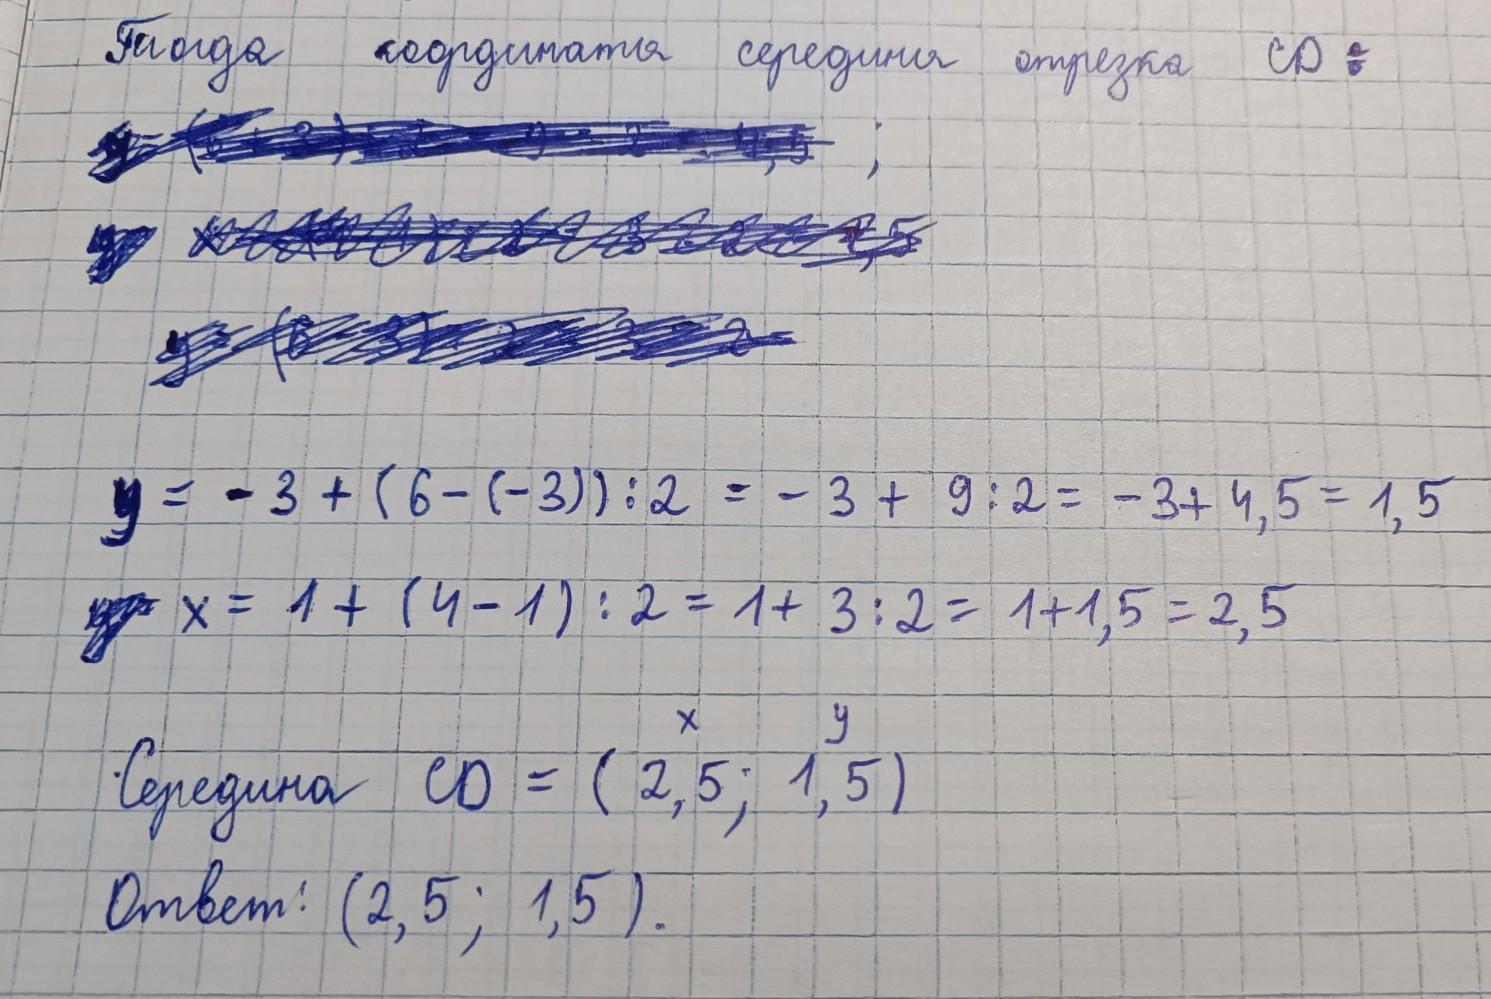 Тогда координаты середины отрезка CD:
;
y = - 3 + (6 - (-3)) : 2 = - 3 + 9 : 2 = - 3 + 4,5 = 1,5
x = 1 + (4 - 1) : 2 = 1 + 3 : 2 = 1 + 1,5 = 2,5
x y
Середина CD = (2,5; 1,5)
Ответ: (2,5; 1,5).